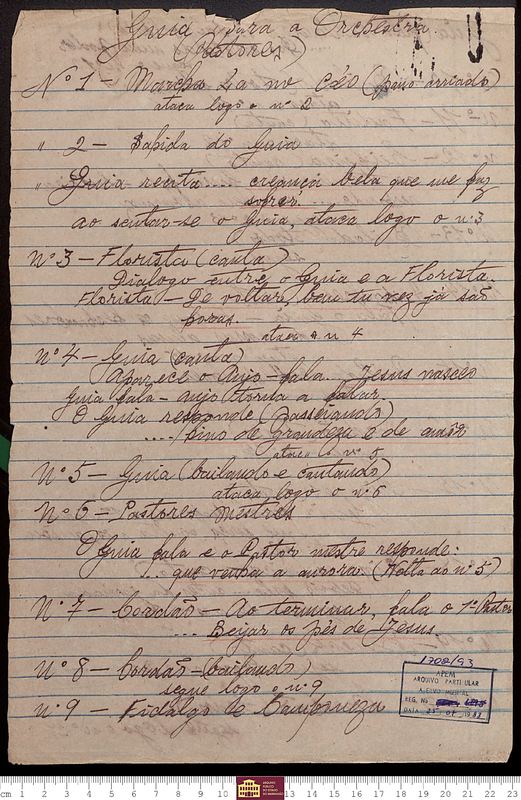 Guia para a Orchestra
(Pastores)
Nº 1 - Marcha La no Céo (pano arriado)
ataca logo o nº 2
" 2 - Sahida do Guia
" Guia recita .... creança bela que me faz
sorrer,
ao sentar-se o Guia, ataca logo o nº 3
Nº 3 - Florista (canta)
Dialogo entre o Guia e a Florista.
Florista - De voltar, bem tu vez já são
horas.
ataca o nº 4
Nº 4 - Guia (canta)
Aparece o Anjo - fala. Jesus nasceo
Guia fala - anjo torna a falar.
O Guia responde (passeiando)
..... hino de grandeza e de amôr
ataca o nº 5
Nº 5 - Guia (bailando e cantando)
ataca logo o nº 6
Nº 6 - Pastores mestres
O Guia fala e o Pastor mestre responde:
... que venha a aurora. (Volta ao nº 5)
Nº 7 - Cordão - Ao terminar, fala o 1º Pastor
.... Beijar os pés de Jesus.
Nº 8 - Cordão - (bailando)
segue logo o nº 9
Nº 9 - Fidalgo e Camponeza
1708/93
APEM
ARQUIVO PARTICULAR
ACERVO MUSICAL
REG. Nº
DATA
cm 1 2 3 4 5 6 7 8 9 10 11 12 13 14 15 16 17 18 19 20 21 22 23